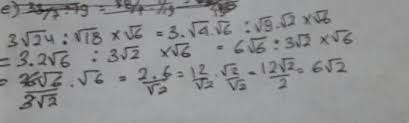 e)
3√24 : √18 × √6 = 3.√4.√6 : √9.√2 × √6
= 3.2√6 : 3√2 × √6 = 6√6 : 3√2 × √6
= 6√6/3√2 . √6 = 2.6/√2 = 12/√2 . √2/√2 = 12√2/2 = 6√2